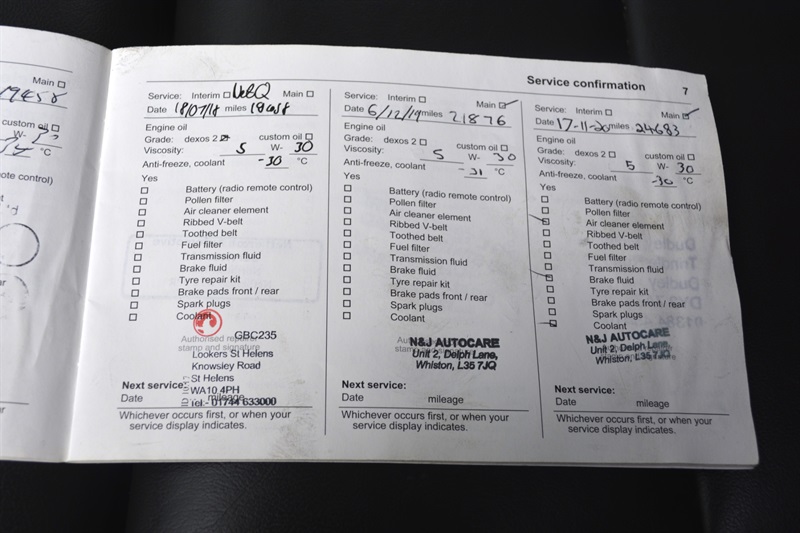 Main
19458
custom oil
W-
°C
Service confirmation 7
Service: Interim Main
Date 18/07/18 miles
Engine oil
Grade: dexos 2 custom oil
Viscosity: 5 W- 30
Anti-freeze, coolant -30 °C
Yes
Battery (radio remote control)
Pollen filter
Air cleaner element
Ribbed V-belt
Toothed belt
Fuel filter
Transmission fluid
Brake fluid
Tyre repair kit
Brake pads front / rear
Spark plugs
Coolant
Authorised repairer
stamp and signature
GBC235
Lookers St Helens
Knowsley Road
St Helens
WA10 4PH
Tel:- 01744 633000
Next service:
Date mileage
Whichever occurs first, or when your
service display indicates.
Service: Interim Main
Date 6/12/19 miles 21876
Engine oil
Grade: dexos 2 custom oil
Viscosity: 5 W- 30
Anti-freeze, coolant -31 °C
Yes
Battery (radio remote control)
Pollen filter
Air cleaner element
Ribbed V-belt
Toothed belt
Fuel filter
Transmission fluid
Brake fluid
Tyre repair kit
Brake pads front / rear
Spark plugs
Coolant
N&J AUTOCARE
Unit 2, Delph Lane,
Whiston, L35 7JQ
Next service:
Date mileage
Whichever occurs first, or when your
service display indicates.
Service: Interim Main
Date 17-11-20 miles 24683
Engine oil
Grade: dexos 2 custom oil
Viscosity: 5 W- 30
Anti-freeze, coolant -30 °C
Yes
Battery (radio remote control)
Pollen filter
Air cleaner element
Ribbed V-belt
Toothed belt
Fuel filter
Transmission fluid
Brake fluid
Tyre repair kit
Brake pads front / rear
Spark plugs
Coolant
N&J AUTOCARE
Unit 2, Delph Lane,
Whiston, L35 7JQ
Next service:
Date mileage
Whichever occurs first, or when your
service display indicates.